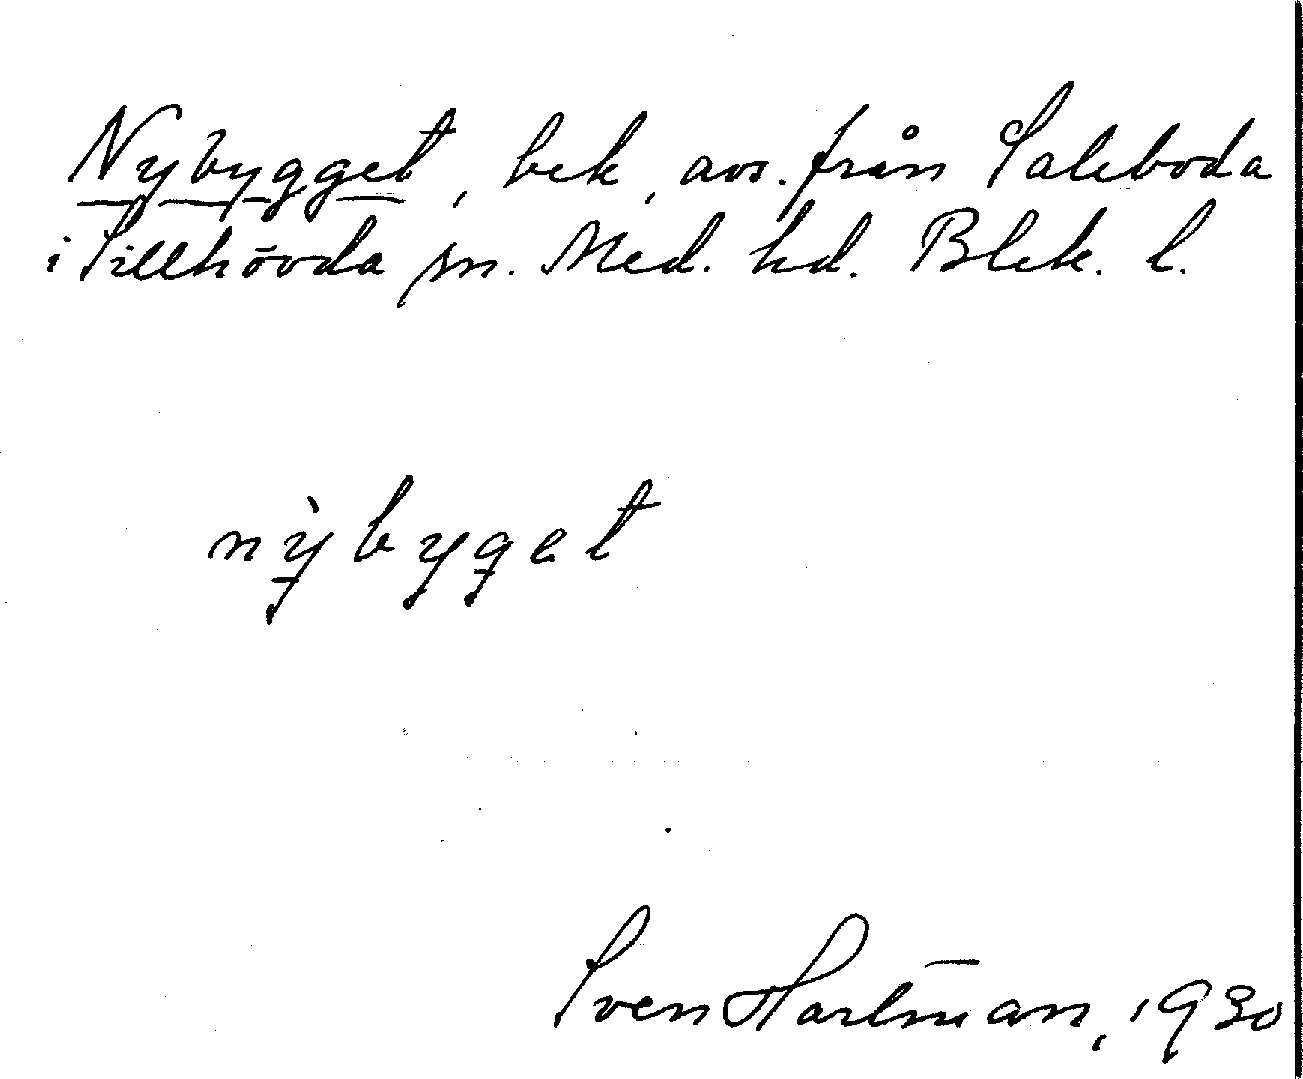 Nybygget, bek, avs. från Saleboda
i Sillhövda sn. Med. hd. Blek. l.
nỳbyget
Sven Hartman, 1930